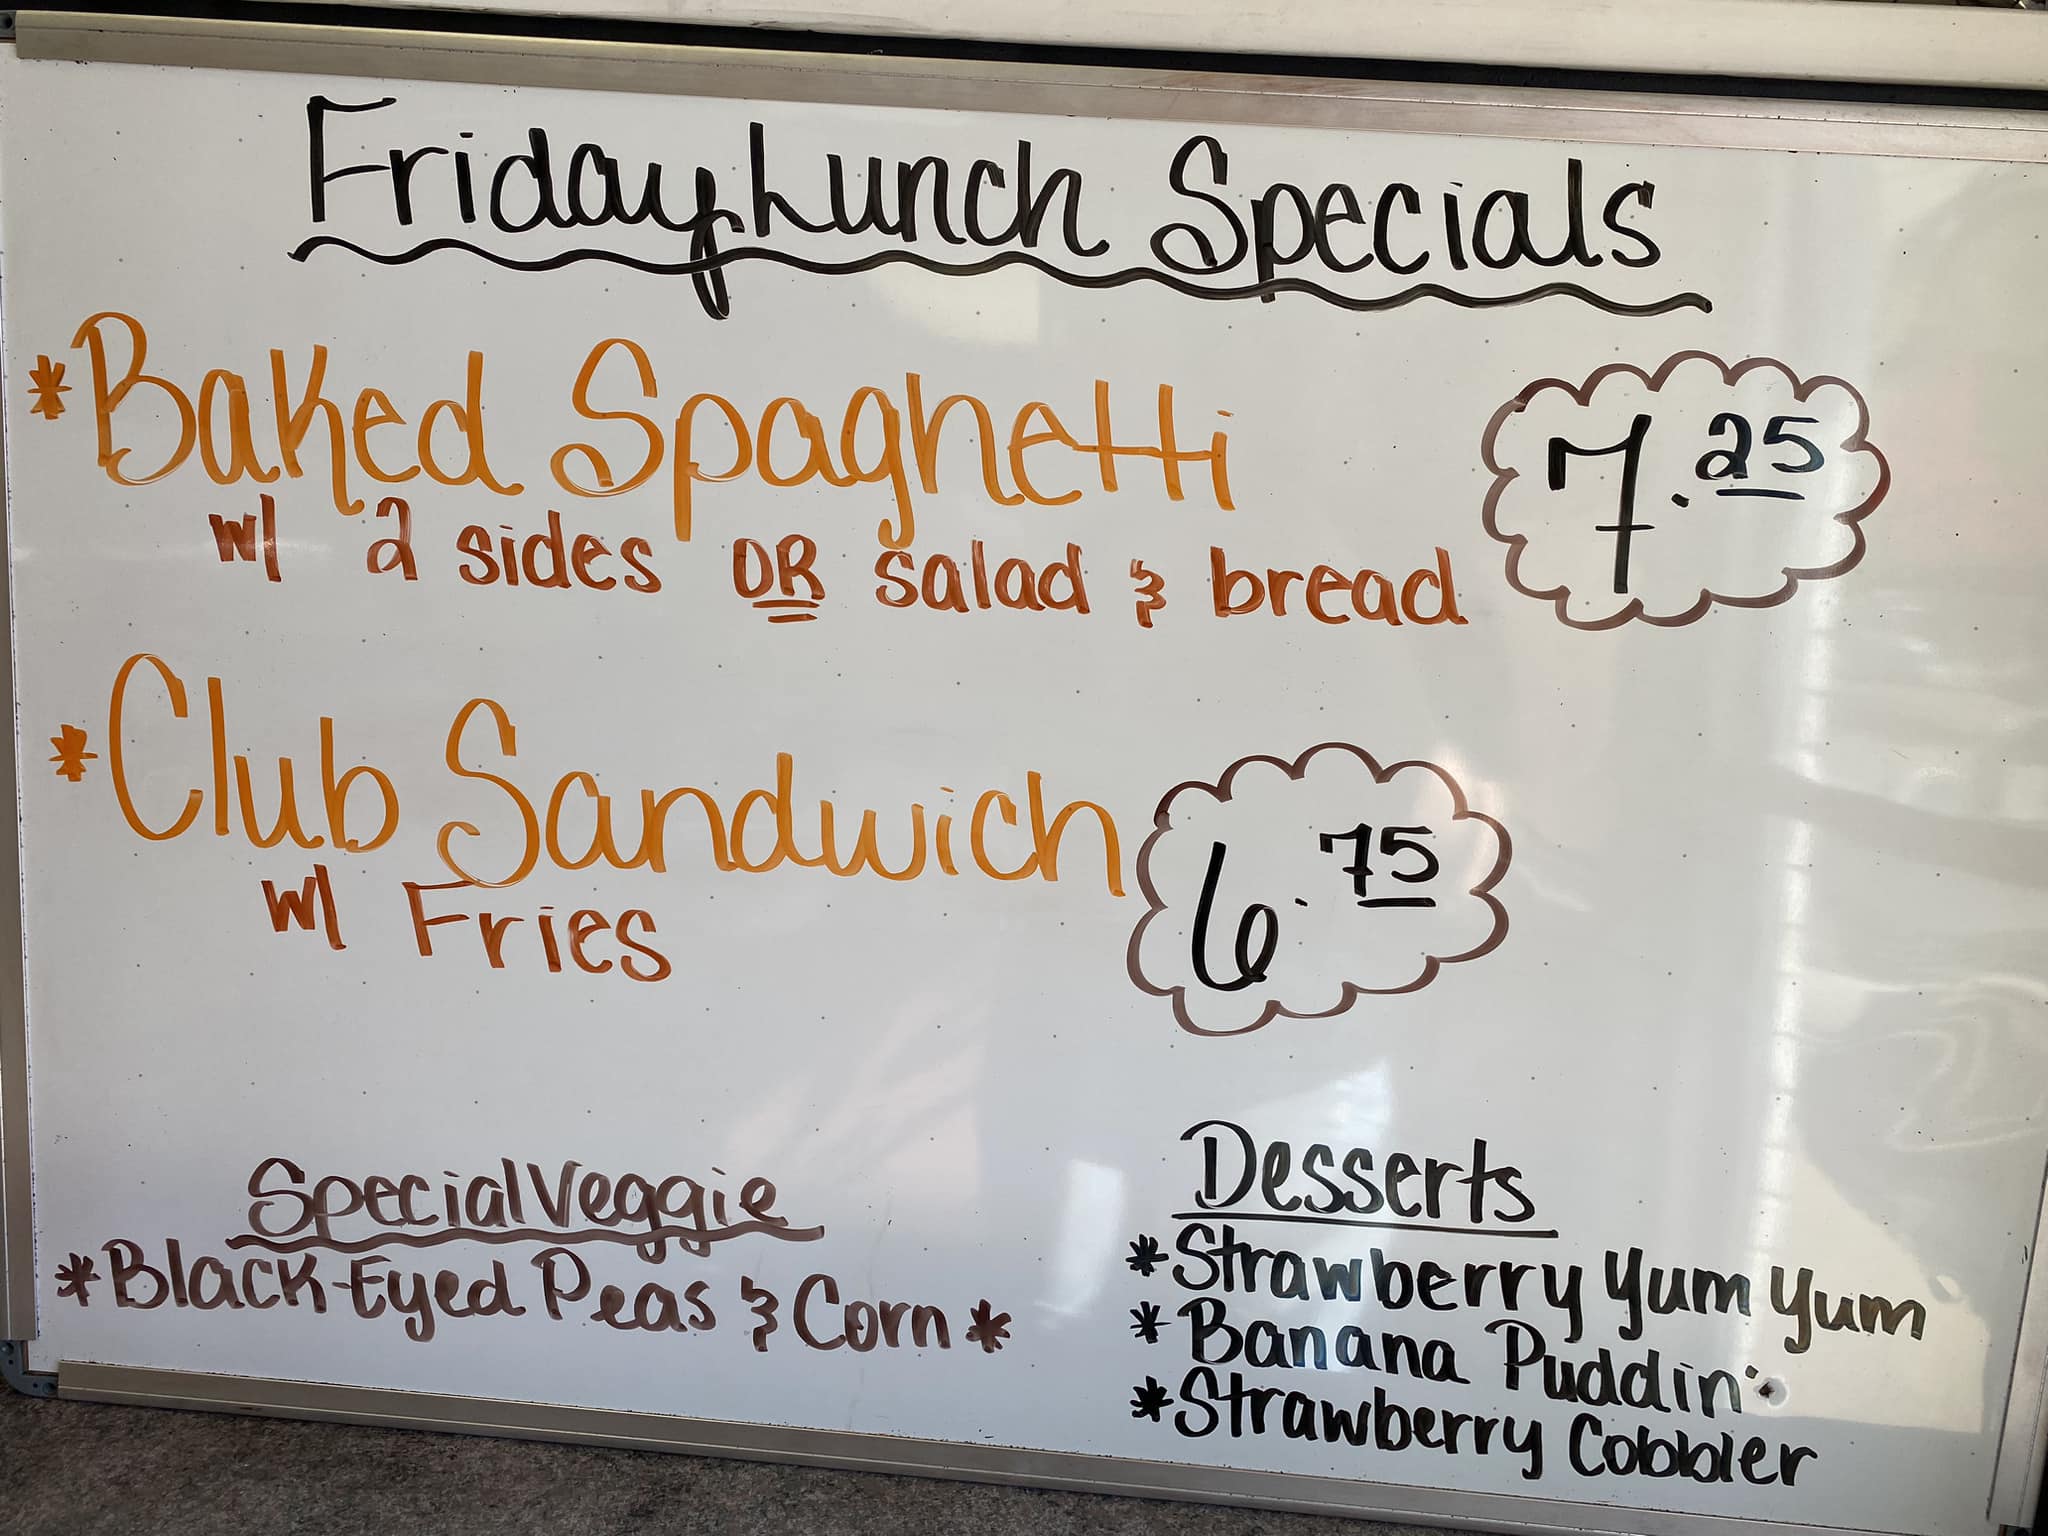 Friday Lunch Specials
*Baked Spaghetti 7.25
w/ 2 sides OR salad & bread
*Club Sandwich 6.75
w/ Fries
Special Veggie
*Black-Eyed Peas & Corn*
Desserts
*Strawberry Yum Yum
*Banana Puddin'
*Strawberry Cobbler